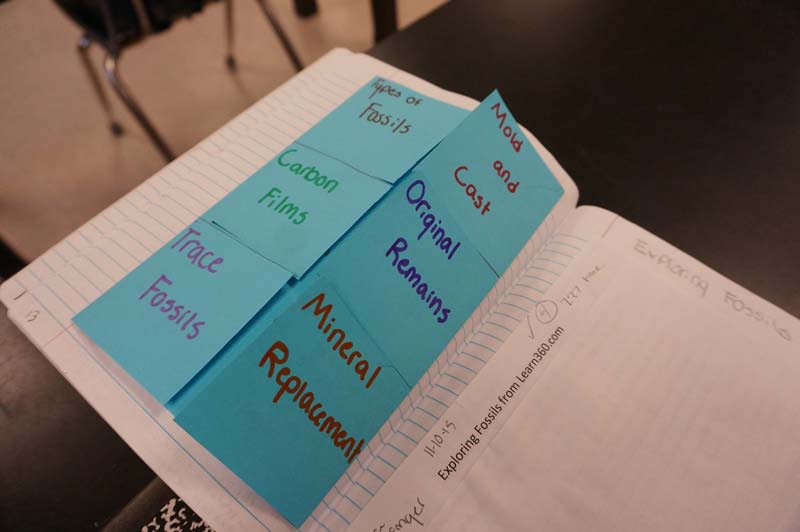 Types of
Fossils
Carbon
Films
Trace
Fossils
Mold
and
Cast
Original
Remains
Mineral
Replacement
Exploring Fossils
11-10-15
Exploring Fossils from Learn360.com